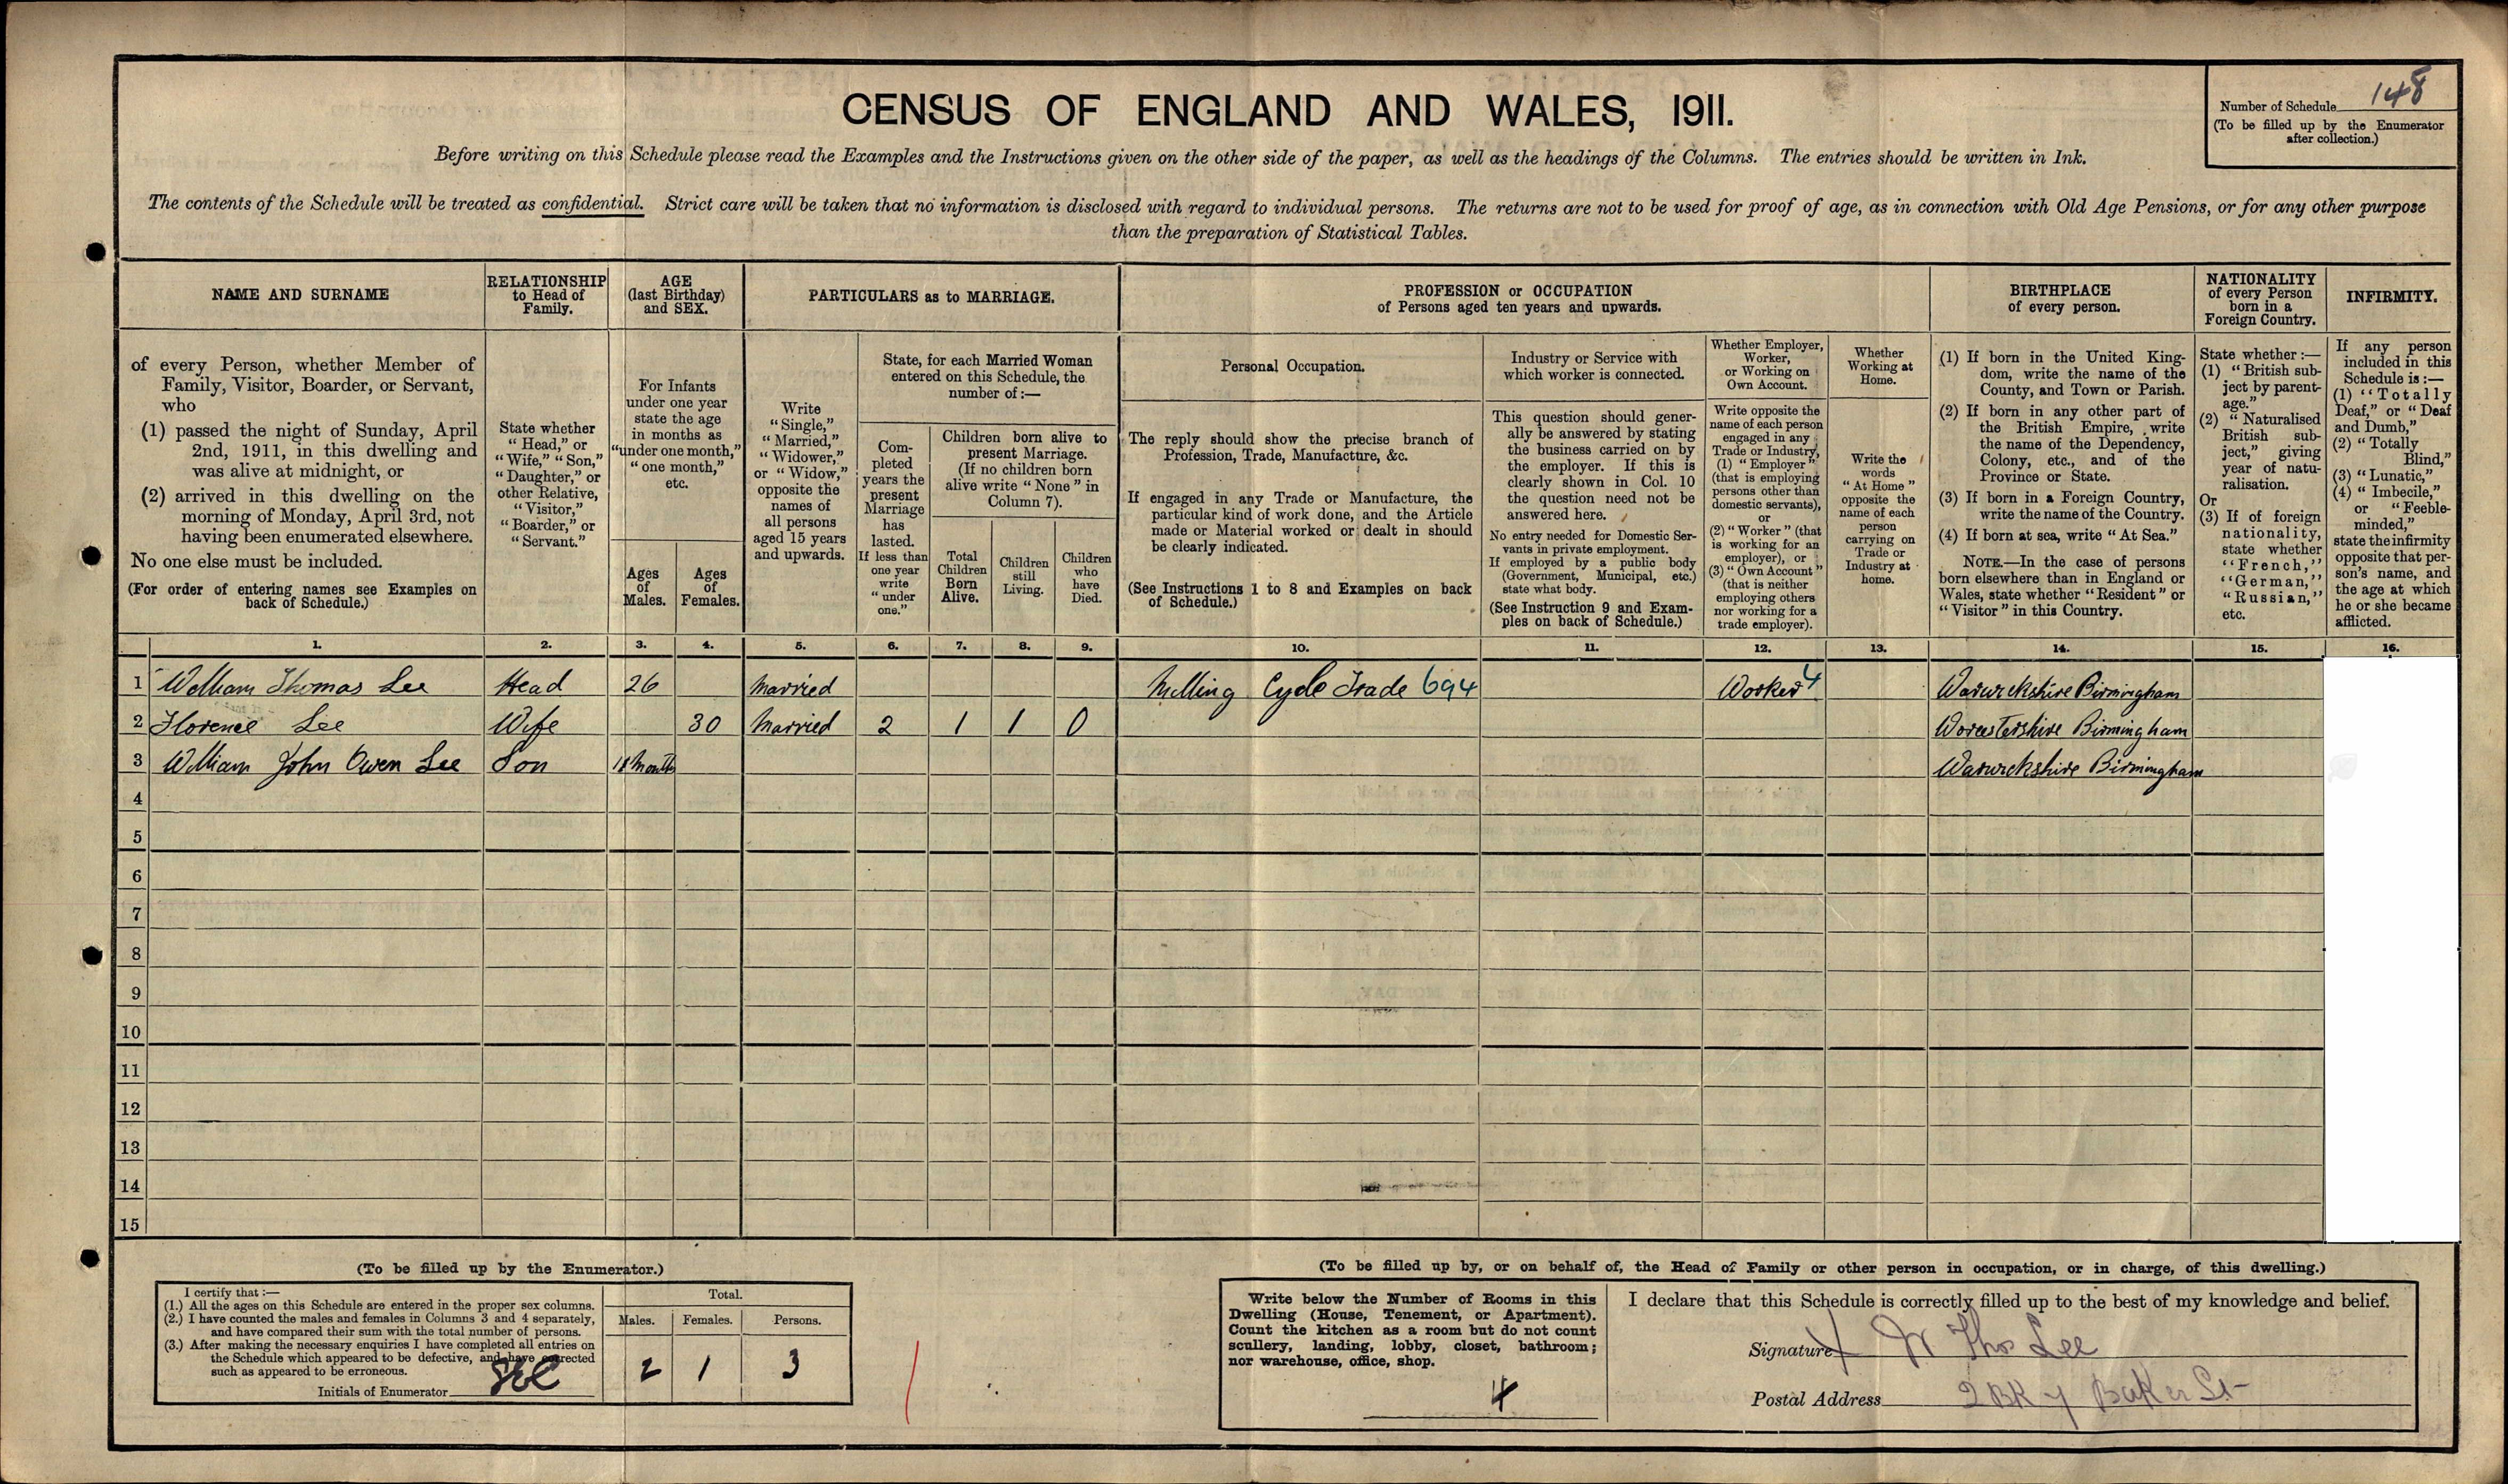 CENSUS OF ENGLAND AND WALES, 1911.
Number of Schedule 148
(To be filled up by the Enumerator
after collection.)
Before writing on this Schedule please read the Examples and the Instructions given on the other side of the paper, as well as the headings of the Columns. The entries should be written in Ink.
The contents of the Schedule will be treated as confidential. Strict care will be taken that no information is disclosed with regard to individual persons. The returns are not to be used for proof of age, as in connection with Old Age Pensions, or for any other purpose
than the preparation of Statistical Tables.
NAME AND SURNAME
of every Person, whether Member of
Family, Visitor, Boarder, or Servant,
who
(1) passed the night of Sunday, April
2nd, 1911, in this dwelling and
was alive at midnight, or
(2) arrived in this dwelling on the
morning of Monday, April 3rd, not
having been enumerated elsewhere.
No one else must be included.
(For order of entering names see Examples on
back of Schedule.)
RELATIONSHIP
to Head of
Family.
State whether
"Head," or
"Wife," "Son,"
"Daughter," or
other Relative,
"Visitor,"
"Boarder," or
"Servant."
AGE
(last Birthday)
and SEX.
For Infants
under one year
state the age
in months as
"under one month,"
"one month,"
etc.
Ages
of
Males.
Ages
of
Females.
PARTICULARS as to MARRIAGE.
Write
"Single,"
"Married,"
"Widower,"
or "Widow,"
opposite the
names of
all persons
aged 15 years
and upwards.
State, for each Married Woman
entered on this Schedule, the
number of:—
Com-
pleted
years the
present
Marriage
has
lasted.
If less than
one year
write
"under
one."
Children born alive to
present Marriage.
(If no children born
alive write "None" in
Column 7).
Total
Children
Born
Alive.
Children
still
Living.
Children
who
have
Died.
PROFESSION or OCCUPATION
of Persons aged ten years and upwards.
Personal Occupation.
The reply should show the precise branch of
Profession, Trade, Manufacture, &c.
If engaged in any Trade or Manufacture, the
particular kind of work done, and the Article
made or Material worked or dealt in should
be clearly indicated.
(See Instructions 1 to 8 and Examples on back
of Schedule.)
Industry or Service with
which worker is connected.
This question should gener-
ally be answered by stating
the business carried on by
the employer. If this is
clearly shown in Col. 10
the question need not be
answered here.
No entry needed for Domestic Ser-
vants in private employment.
If employed by a public body
(Government, Municipal, etc.)
state what body.
(See Instruction 9 and Exam-
ples on back of Schedule.)
Whether Employer,
Worker,
or Working on
Own Account.
Write opposite the
name of each person
engaged in any
Trade or Industry,
(1) "Employer"
(that is employing
persons other than
domestic servants),
or
(2) "Worker" (that
is working for an
employer), or
(3) "Own Account"
(that is neither
employing others
nor working for a
trade employer).
Whether
Working at
Home.
Write the
words
"At Home"
opposite the
name of each
person
carrying on
Trade or
Industry at
home.
BIRTHPLACE
of every person.
(1) If born in the United King-
dom, write the name of the
County, and Town or Parish.
(2) If born in any other part of
the British Empire, write
the name of the Dependency,
Colony, etc., and of the
Province or State.
(3) If born in a Foreign Country,
write the name of the Country.
(4) If born at sea, write "At Sea."
NOTE.—In the case of persons
born elsewhere than in England or
Wales, state whether "Resident" or
"Visitor" in this Country.
NATIONALITY
of every Person
born in a
Foreign Country.
State whether:—
(1) "British sub-
ject by parent-
age."
(2) "Naturalised
British sub-
ject," giving
year of natu-
ralisation.
Or
(3) If of foreign
nationality,
state whether
"French,"
"German,"
"Russian,"
etc.
INFIRMITY.
If any person
included in this
Schedule is:—
(1) "Totally
Deaf," or "Deaf
and Dumb,"
(2) "Totally
Blind,"
(3) "Lunatic,"
(4) "Imbecile,"
or "Feeble-
minded,"
state the infirmity
opposite that per-
son's name, and
the age at which
he or she became
afflicted.
1. 2. 3. 4. 5. 6. 7. 8. 9. 10. 11. 12. 13. 14. 15. 16.
1 William Thomas Lee Head 26 Married Milling Cycle Trade 694 Worker 4 Warwickshire Birmingham
2 Florence Lee Wife 30 Married 2 1 1 0 Worcestershire Birmingham
3 William John Owen Lee Son 18 Months Warwickshire Birmingham
4
5
6
7
8
9
10
11
12
13
14
15
(To be filled up by the Enumerator.)
I certify that:—
(1.) All the ages on this Schedule are entered in the proper sex columns.
(2.) I have counted the males and females in Columns 3 and 4 separately,
and have compared their sum with the total number of persons.
(3.) After making the necessary enquiries I have completed all entries on
the Schedule which appeared to be defective, and have corrected
such as appeared to be erroneous.
Initials of Enumerator
Total.
Males. Females. Persons.
2 1 3
(To be filled up by, or on behalf of, the Head of Family or other person in occupation, or in charge, of this dwelling.)
Write below the Number of Rooms in this
Dwelling (House, Tenement, or Apartment).
Count the kitchen as a room but do not count
scullery, landing, lobby, closet, bathroom;
nor warehouse, office, shop.
4
I declare that this Schedule is correctly filled up to the best of my knowledge and belief.
Signature W Thos Lee
Postal Address 2 BK 7 Baker St